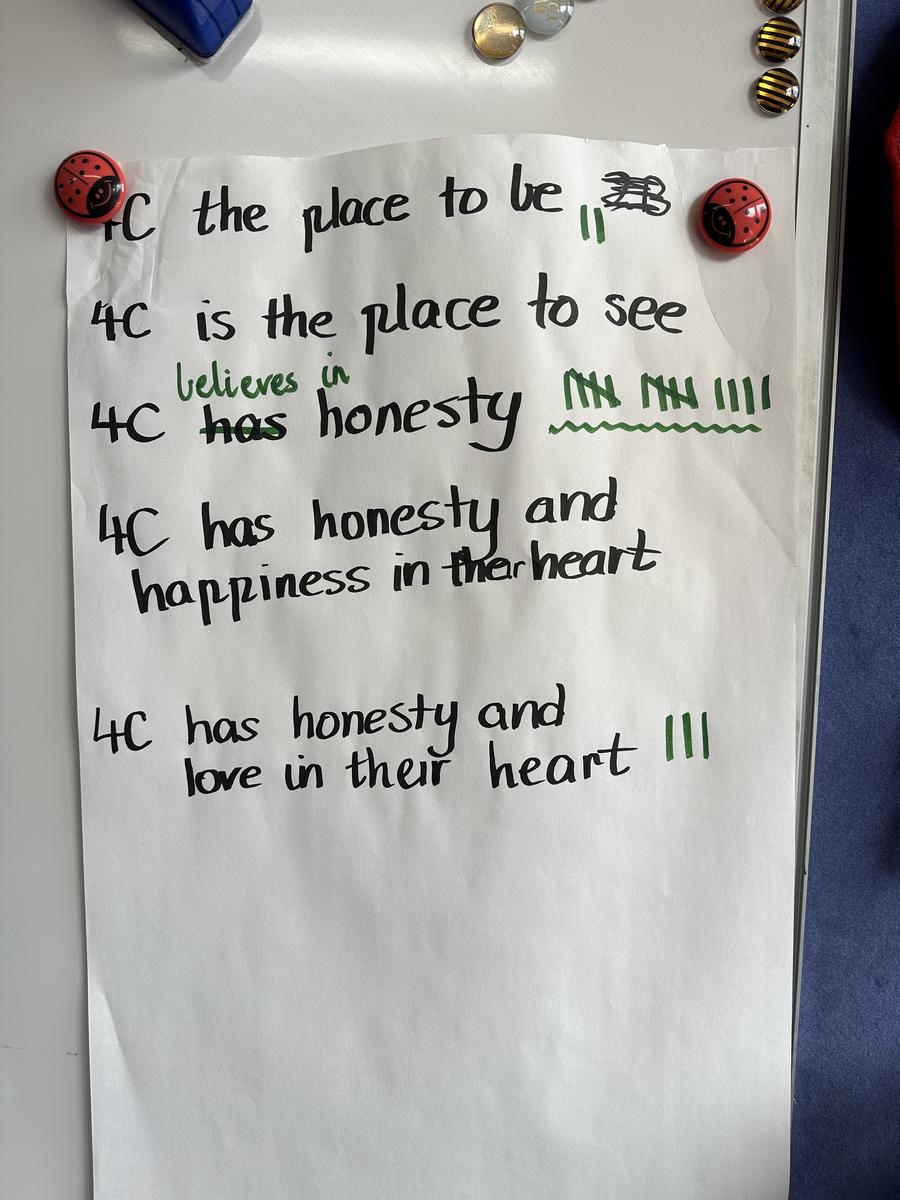 4C the place to be
4C is the place to see
believes in
4C has honesty
4C has honesty and
happiness in their heart
4C has honesty and
love in their heart